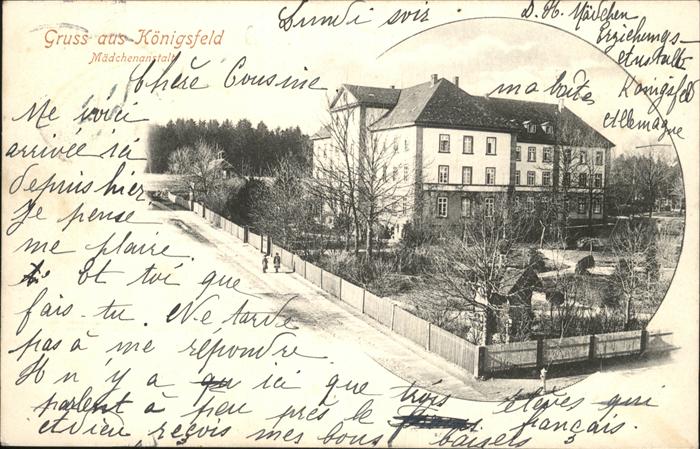 Lundi soir
D. H. Mädchen
Erziehungs-
Anstalt
Königsfeld
Allemagne
Gruss aus Königsfeld
Mädchenanstalt
Chère Cousine
Me voici
arrivée ici
depuis hier
Je pense
me plaire.
Et toi que
fais-tu. Ne tarde
pas à me répondre.
Il n'y a ici que trois élèves qui
parlent à peu près le français.
et reçois mes bons baisers